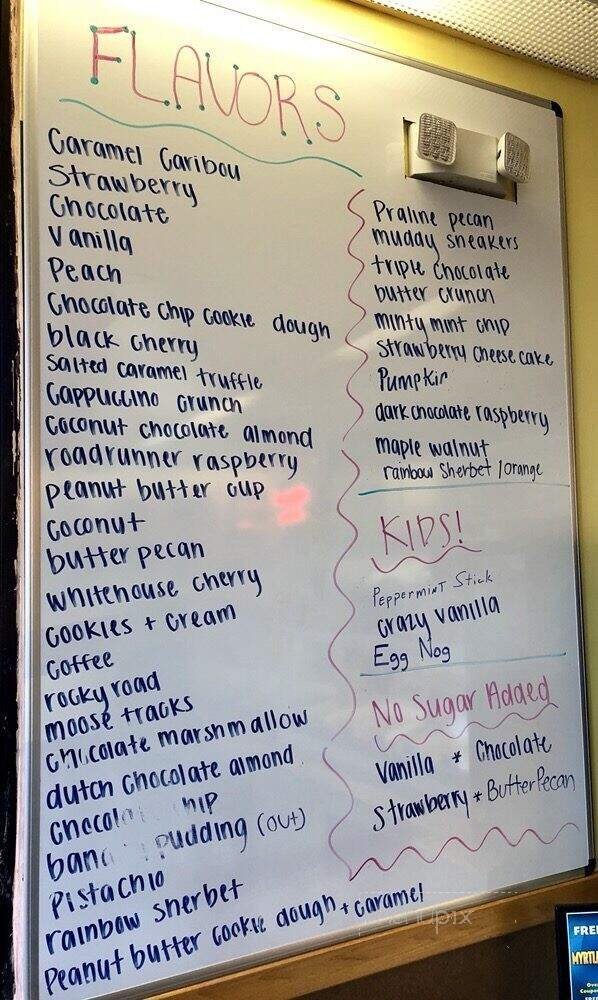 FLAVORS
Caramel Caribou
Strawberry
Chocolate
Vanilla
Peach
Chocolate Chip Cookie dough
black cherry
salted caramel truffle
Cappuccino crunch
Coconut chocolate almond
roadrunner raspberry
peanut butter cup
Coconut
butter pecan
whitehouse cherry
Cookies + Cream
Coffee
rocky road
moose tracks
chocolate marshmallow
dutch chocolate almond
pudding (out)
Pistachio
rainbow sherbet
Peanut butter cookie dough + caramel
Praline pecan
muddy sneakers
triple chocolate
butter crunch
minty mint chip
Strawberry cheese cake
Pumpkin
dark chocolate raspberry
maple walnut
rainbow Sherbet / orange
KIDS!
Peppermint Stick
crazy vanilla
Egg Nog
No Sugar Added
Vanilla * Chocolate
Strawberry * Butter Pecan
FREE
MYRTLE